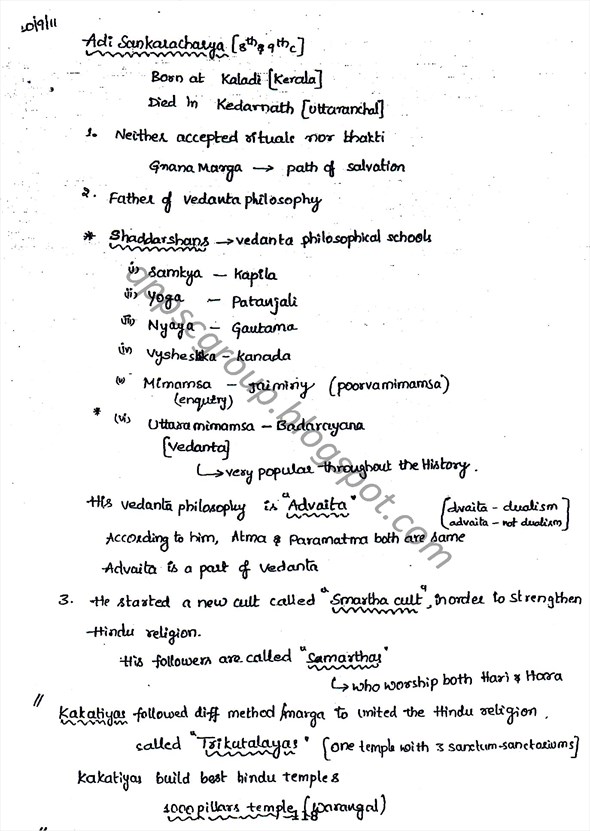 20/9/11
Adi Sankaracharya [8th & 9th c]
Born at Kaladi [Kerala]
Died in Kedarnath [Uttaranchal]
1. Neither accepted rituals nor bhakti
Gnana Marga → path of salvation
2. Father of vedanta philosophy
* Shaddarshans → vedanta philosophical schools
i) Samkya - Kapila
ii) Yoga - Patanjali
iii) Nyaya - Gautama
iv) Vysheshka - kanada
(v) Mimamsa - Jaiminy (poorvamimamsa)
(enquiry)
* (vi) Uttara mimamsa - Badarayana
[Vedanta]
↳ very popular throughout the History.
His vedanta philosophy is "Advaita" [dvaita - dualism
advaita - not dualism]
According to him, Atma & Paramatma both are same
Advaita is a part of vedanta
3. He started a new cult called "Smartha cult", inorder to strengthen
Hindu religion.
His followers are called "Samarthas"
↳ who worship both Hari & Hara
// Kakatiyas followed diff method/marga to united the Hindu religion.
called "Trikutalayas" [one temple with 3 sanctum-sanctoriums]
Kakatiyas build best hindu temples
1000 pillars temple (Warangal)
118
appscgroup.blogspot.com